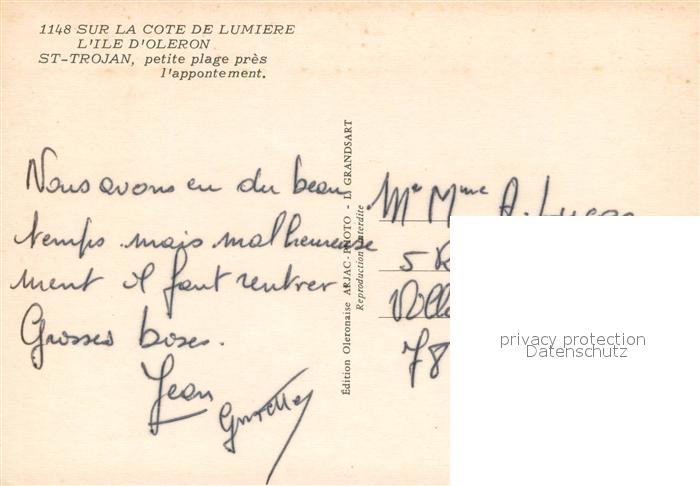 1148 SUR LA COTE DE LUMIERE
L'ILE D'OLERON
ST-TROJAN, petite plage près
l'appontement.
Nous avons eu du beau
temps mais malheureuse
ment il faut rentrer
Grosses bises.
Jean
Édition Oleronaise ARJAC-PHOTO - LE GRANDSART
Reproduction interdite
Mr Mme A.
5
78
privacy protection
Datenschutz